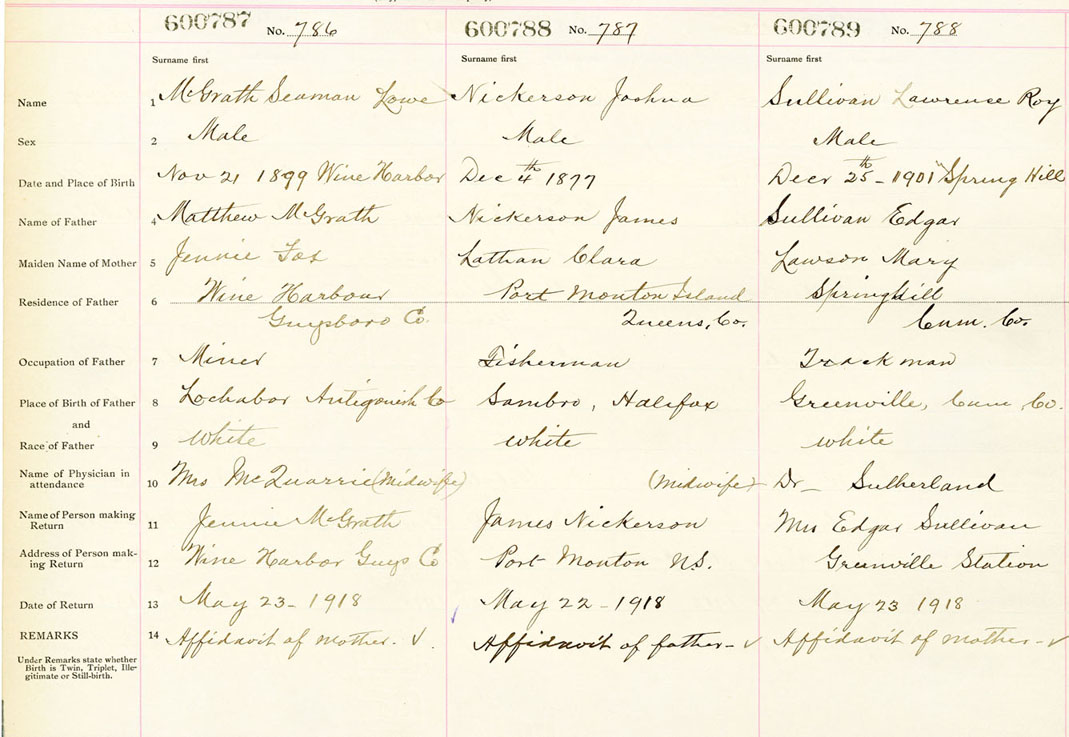 600787 No. 786 600788 No. 787 600789 No. 788
Surname first Surname first Surname first
Name 1 McGrath Seaman Lowe Nickerson Joshua Sullivan Lawrense Roy
Sex 2 Male Male Male
Date and Place of Birth Nov 21 1899 Wine Harbor Dec 4th 1877 Decr 25th - 1901 Spring Hill
Name of Father 4 Matthew McGrath Nickerson James Sullivan Edgar
Maiden Name of Mother 5 Jennie Fox Lathan Clara Lawson Mary
Residence of Father 6 Wine Harbour Port Monton Island Springhill
Guysboro Co. Queens, Co. Cum. Co.
Occupation of Father 7 Miner Fisherman Trackman
Place of Birth of Father 8 Lochabor Antigonish Co Sambro, Halifax Greenville, Cum. Co.
and
Race of Father 9 White White White
Name of Physician in
attendance 10 Mrs McQuarrie (Midwife) (Midwife) Dr - Sutherland
Name of Person making
Return 11 Jennie McGrath James Nickerson Mrs Edgar Sullivan
Address of Person mak-
ing Return 12 Wine Harbor Guys Co Port Monton N.S. Greenville Station
Date of Return 13 May 23 - 1918 May 22 - 1918 May 23 1918
REMARKS 14 Affidavit of mother - √ Affidavit of father - √ Affidavit of mother - √
Under Remarks state whether
Birth is Twin, Triplet, Ille-
gitimate or Still-birth.